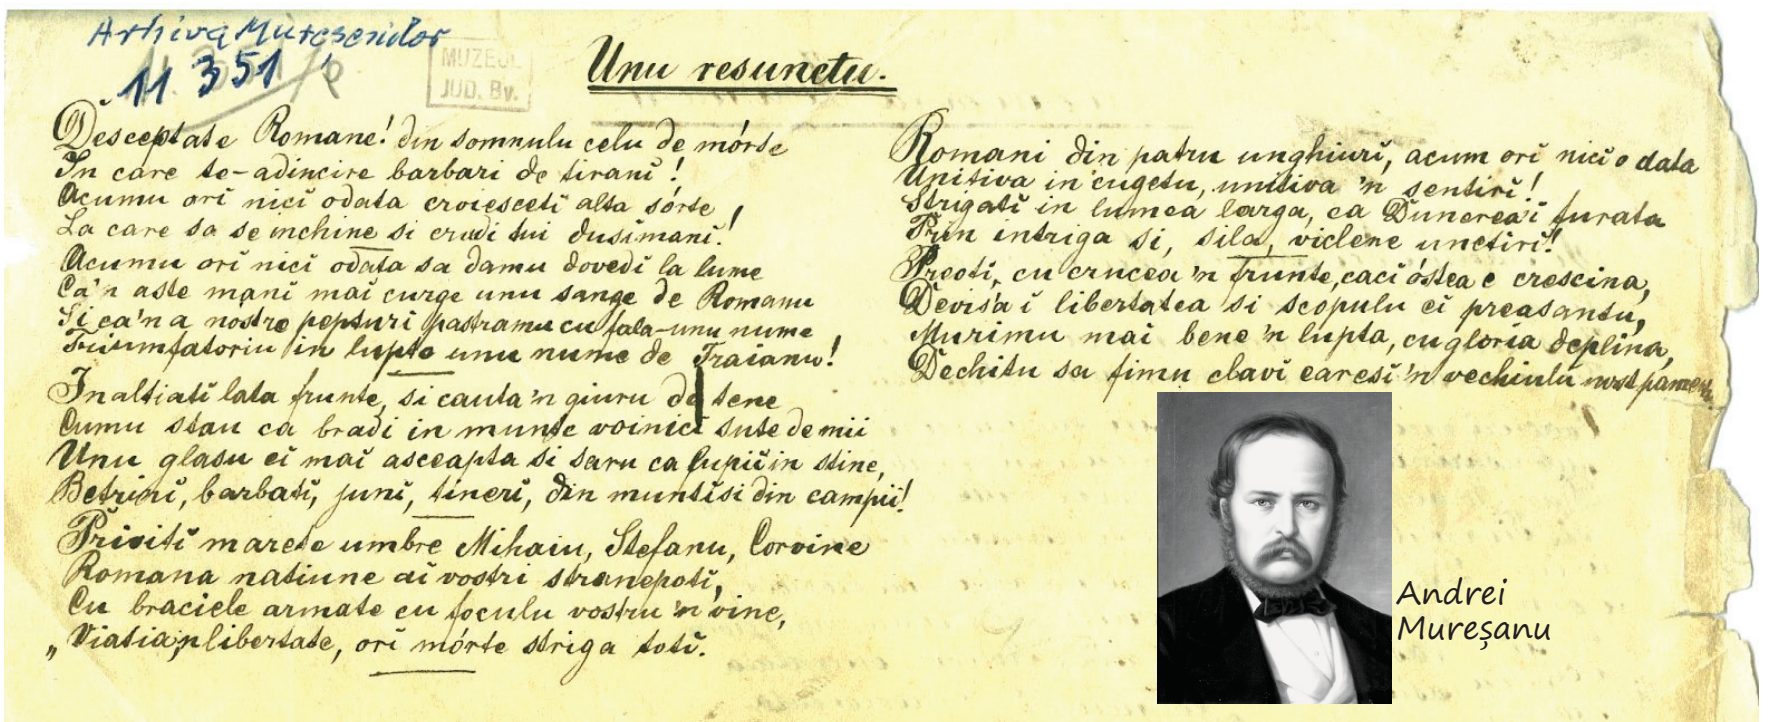 Arhiva Mureșenilor
11 351
MUZEUL
JUD. Bv.
Unu resunetu.
Desceptate Romane! din somnulu celu de mórte
In care te-adincire barbari de tirani!
Acumu ori nici odata croiesceti alta sórte
La care sa se inchine si crudi tui dusimani!
Acumu ori nici odata sa damu dovedi la lume
Ca'n aste mani mai curge unu sange de Romanu
Si ca'n a nostre pepturi pastramu cu fala-unu nume
Triumfatoriu in lupte unu nume de Traianu!
Inaltiati lata frunte, si cauta'n giuru de tene
Cumu stau ca bradi in munte voinici sute de mii
Unu glasu ei mai asceapta si saru ca lupii in stine,
Betrini, barbati, juni, tineri, din munti si din campii!
Priviti marete umbre Mihaiu, Stefanu, Corvine
Romana natiune ai vostri stranepoti,
Cu braciele armate cu foculu vostru'n vine,
„Viatia'n libertate, ori mórte striga toti.
Romani din patru unghiuri, acum ori nici o data
Uniti va in cugetu, uniti va 'n sentiri!
Strigati in lumea larga, ca Dunerea'i furata
Prin intriga si, sila, viclene unctiri!
Preoti, cu crucea'n frunte, caci óstea e crescina,
Devisa i libertatea si scopulu ei preasantu,
Murimu mai bene'n lupta, cu gloria deplina,
Dechitu sa fimu clavi earesi'n vechiulu nost pamentu.
Andrei
Mureșanu